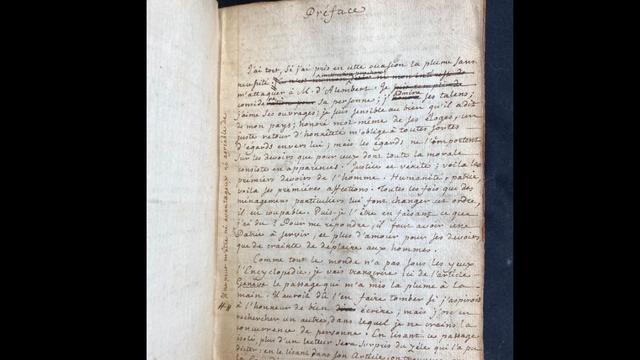 Préface
J'ai tort, si j'ai pris en cette ocasion la plume sans
necessité.
m'attaquer à M. d'Alembert. Je
considére sa personne; j'admire ses talens;
j'aime ses ouvrages; je suis sensible au bien qu'il a dit
de mon pays; honoré moi-même de ses éloges, un
juste retour d'honnêteté m'oblige à toutes sortes
d'égards envers lui; mais les égards ne l'emportent
sur les devoirs que pour ceux dont toute la morale
consiste en apparences. Justice et vérité; voila les
premiers devoirs de l'homme. Humanité, patrie,
voila ses premières affections. Toutes les fois que des
ménagemens particuliers lui font changer cet ordre,
il est coupable. Puis-je l'être en faisant ce que
j'ai du? Pour me répondre, il faut avoir une
Patrie à servir, et plus d'amour pour ses devoirs,
que de crainte de déplaire aux hommes.
Comme tout le monde n'a pas sous les yeux
l'Encyclopédie, je vais transcrire ici de l'article
Genève le passage qui m'a mis la plume à la
main. Il auroit dû l'en faire tomber si j'aspirois
à l'honneur de bien écrire; mais j'ose en
rechercher un autre, dans lequel je ne crains la
concurrence de personne. En lisant ce passage
isolé, plus d'un lecteur sera surpris du zéle qui l'a pu
dicter: en le lisant dans son Article, on
Il ne peut m'être ni avantageux ni agréable de